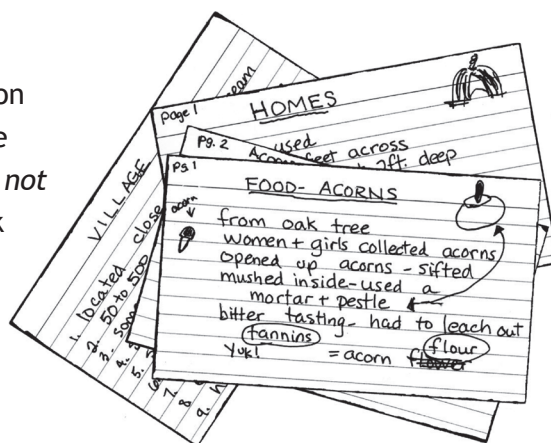 on
e
not
k
VILLAGE
1. located close
2. 50 to 500
3.
4.
5.
7.
8
9. h
eam
Page 1
HOMES
feet across
2ft. deep
Pg. 2
used
Pg. 1
FOOD- ACORNS
acorn
from oak tree
women + girls collected acorns
opened up acorns - sifted
mushed inside-used a
mortar + pestle
bitter tasting- had to leach out
tannins
Yuk! = acorn flour